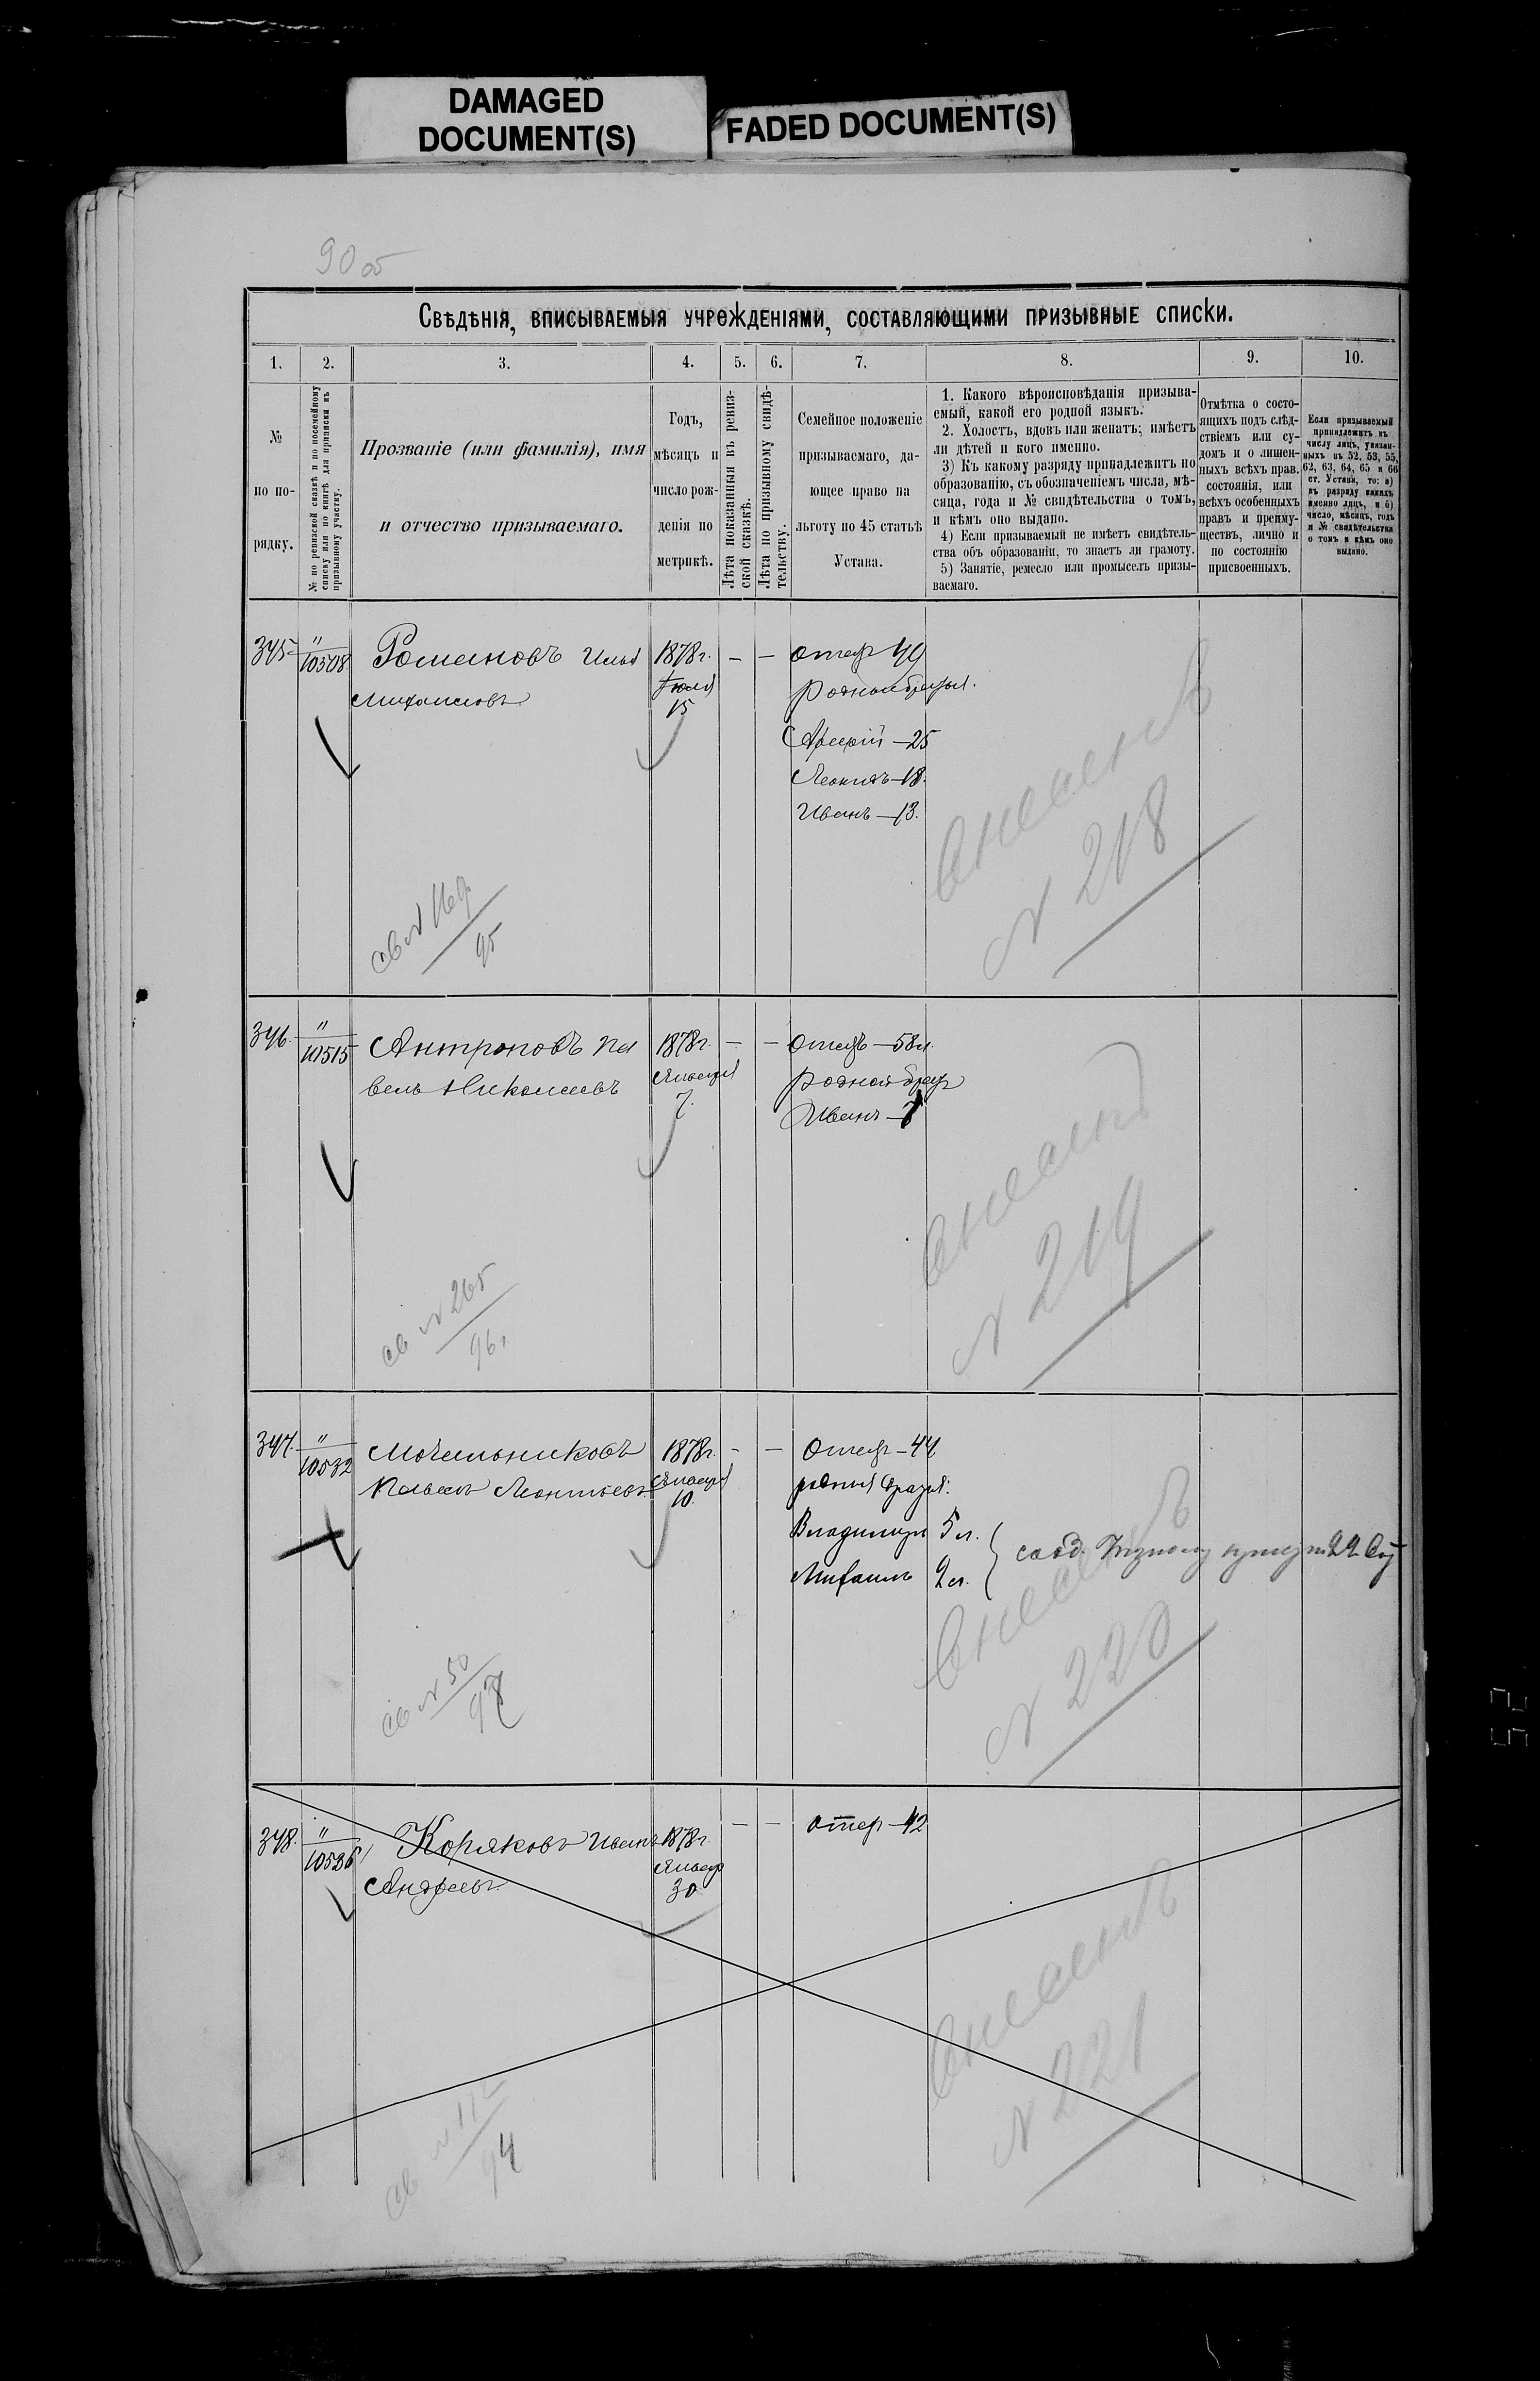 DAMAGED
DOCUMENT(S)
FADED DOCUMENT(S)
90 об
Свѣдѣнія, вписываемыя учрежденіями, составляющими призывные списки.
1. 2. 3. 4. 5. 6. 7. 8. 9. 10.
№
по по-
рядку.
№ по ревизской сказкѣ и по посемейному
списку или по книгѣ для приписки къ
призывному участку.
Прозваніе (или фамилія), имя
и отчество призываемаго.
Годъ,
мѣсяцъ и
число рож-
денія по
метрикѣ.
Лѣта показанныя въ ревиз-
ской сказкѣ.
Лѣта по призывному свидѣ-
тельству.
Семейное положеніе
призываемаго, да-
ющее право на
льготу по 45 статьѣ
Устава.
1. Какого вѣроисповѣданія призыва-
емый, какой его родной языкъ.
2. Холостъ, вдовъ или женатъ; имѣетъ
ли дѣтей и кого именно.
3) Къ какому разряду принадлежитъ по
образованію, съ обозначеніемъ числа, мѣ-
сяца, года и № свидѣтельства о томъ,
и кѣмъ оно выдано.
4) Если призываемый не имѣетъ свидѣтель-
ства объ образованіи, то знаетъ ли грамоту.
5) Занятіе, ремесло или промыселъ призы-
ваемаго.
Отмѣтка о состо-
ящихъ подъ слѣд-
ствіемъ или су-
домъ и о лишен-
ныхъ всѣхъ прав.
состоянія, или
всѣхъ особенныхъ
правъ и преиму-
ществъ, лично и
по состоянію
присвоенныхъ.
Если призываемый
принадлежитъ къ
числу лицъ, указан-
ныхъ въ 52, 53, 55,
62, 63, 64, 65 и 66
ст. Устава, то: а)
къ разряду какихъ
именно лицъ, и б)
число, мѣсяцъ, годъ
и № свидѣтельства
о томъ и кѣмъ оно
выдано.
345 " 10508 Романовъ Илья 1878г. — — Отецъ 49
Михаиловъ Іюля Родные братья.
15
Арсений — 25
Леонидъ — 18.
Иванъ — 13.
Внесенъ
№ 218
св № 169
95
346. " 10515 Антроповъ Па 1878г. — — Отецъ — 58л.
велъ Николаевъ Января родной братъ
7. Иванъ — 7
Внесенъ
№ 219
св № 265
96г
347. " 10532 Мочильниковъ 1878г. — — Отецъ — 44
Павелъ Леонтьевъ Января родные братья:
10.
Владимиръ 5 л.
Михаилъ 2 л.
22
Внесенъ
№ 220
св № 50
97
348. " 10536 Коряковъ Иванъ 1878г. — — отецъ — 42
Андреевъ Января
30
Внесенъ
№ 221
св №
94
52